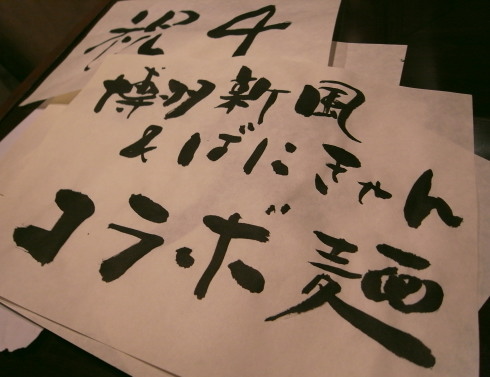 祝 4
博多新風
&ばにきゃん
コラボ麺